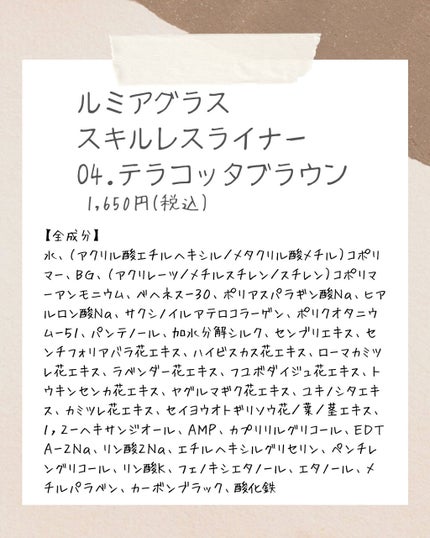 ルミアグラス
スキルレスライナー
04.テラコッタブラウン
1,650円(税込)
【全成分】
水、(アクリル酸エチルヘキシル/メタクリル酸メチル)コポリ
マー、BG、(アクリレーツ/メチルスチレン/スチレン)コポリマ
ーアンモニウム、ベヘネス-30、ポリアスパラギン酸Na、ヒア
ルロン酸Na、サクシノイルアテロコラーゲン、ポリクオタニウ
ム-51、パンテノール、加水分解シルク、センブリエキス、セ
ンチフォリアバラ花エキス、ハイビスカス花エキス、ローマカミツ
レ花エキス、ラベンダー花エキス、フユボダイジュ花エキス、ト
ウキンセンカ花エキス、ヤグルマギク花エキス、ユキノシタエキ
ス、カミツレ花エキス、セイヨウオトギリソウ花/葉/茎エキス、
1,2-ヘキサンジオール、AMP、カプリリルグリコール、EDT
A-2Na、リン酸2Na、エチルヘキシルグリセリン、ペンチレ
ングリコール、リン酸K、フェノキシエタノール、エタノール、メ
チルパラベン、カーボンブラック、酸化鉄